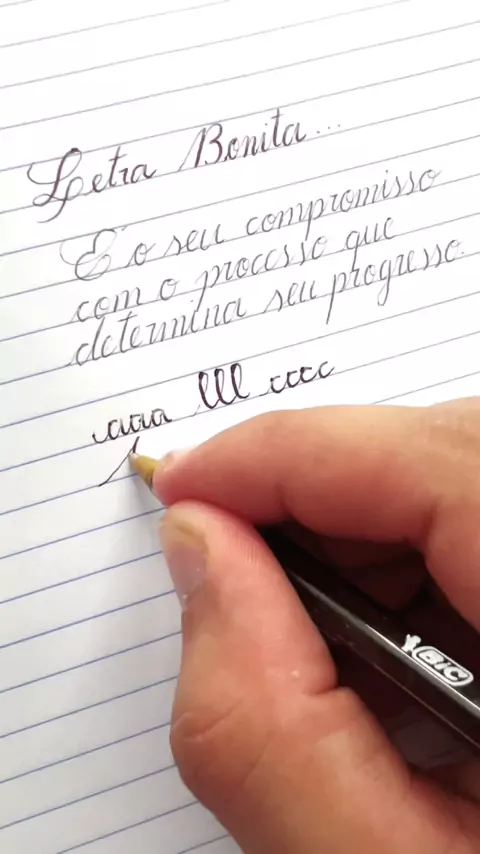 Letra Bonita...
É o seu compromisso
com o processo que
determina seu progresso.
aaaa lll cccc
BIC